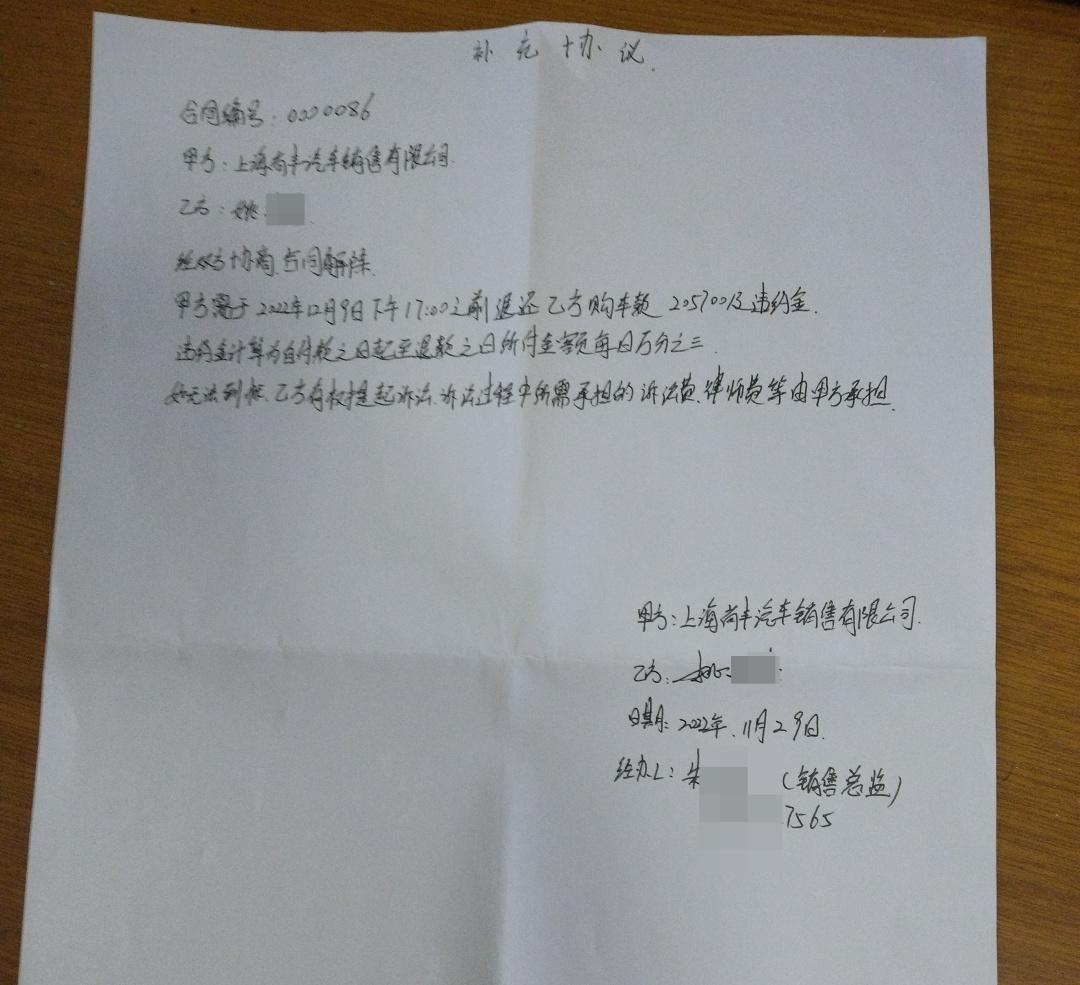 补充协议.
合同编号: 0000086
甲方: 上海尚丰汽车销售有限公司.
乙方: 姚
经双方协商,合同解除.
甲方需于2022年12月9日下午17:00之前退还乙方购车款 205700及违约金.
违约金计算为自付款之日起至退款之日所付金额每日万分之三.
如无法到帐,乙方有权提起诉讼.诉讼过程中所需承担的诉讼费、律师费等由甲方承担.
甲方: 上海尚丰汽车销售有限公司.
乙方: 姚
日期: 2022年.11月29日.
经办人: 朱 (销售总监)
7565